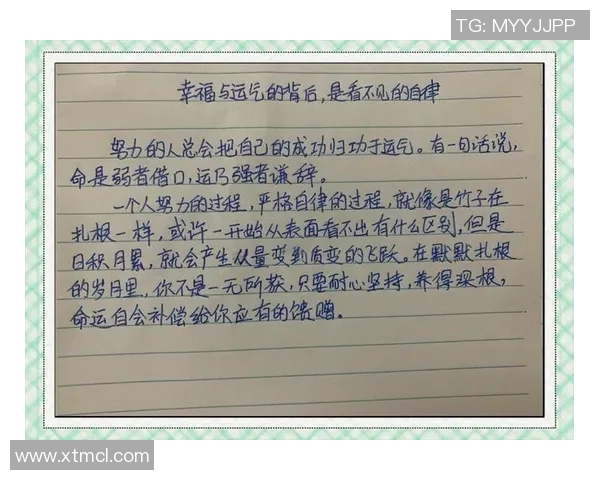 TG: MYYJJPP
幸福与运气的背后,是看不见的自律
努力的人总会把自己的成功归功于运气。有一句话说,
命是弱者借口,运乃强者谦辞。
一个人努力的过程,严格自律的过程,就像是竹子在
扎根一样,或许一开始从表面看不出有什么区别,但是
日积月累,就会产生从量变到质变的飞跃。在默默扎根
的岁月里,你不是一无所获,只要耐心坚持,养得深根,
命运自会补偿给你应有的馈赠。
www.xtmcl.com